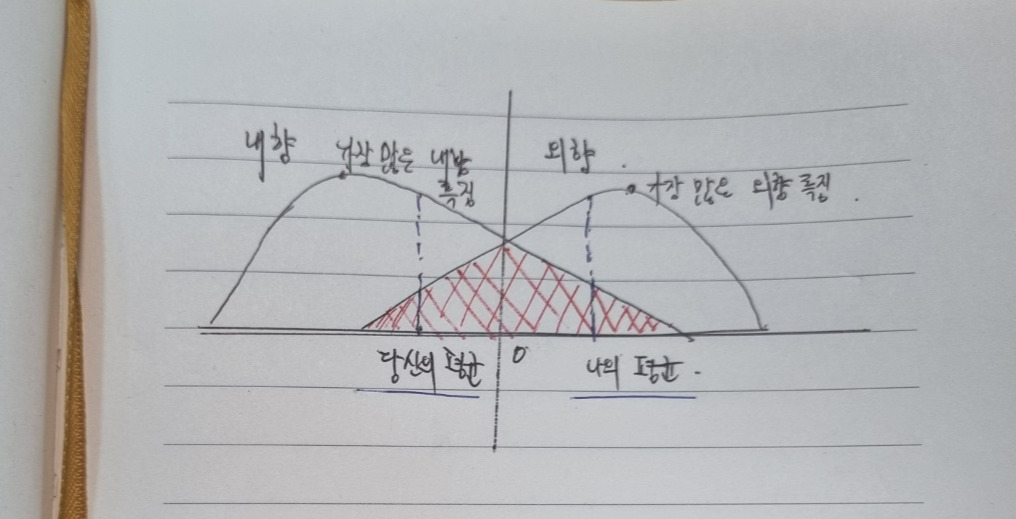 내향
가장 많은 내향
특징
외향.
가장 많은 외향 특징.
당신의 평균
0
나의 평균.